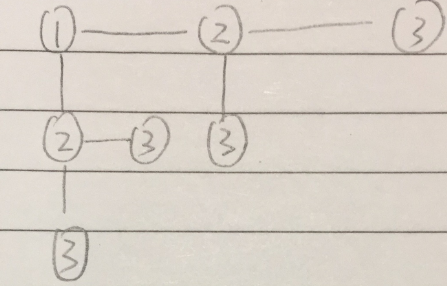 1 2 3
2 3 3
3